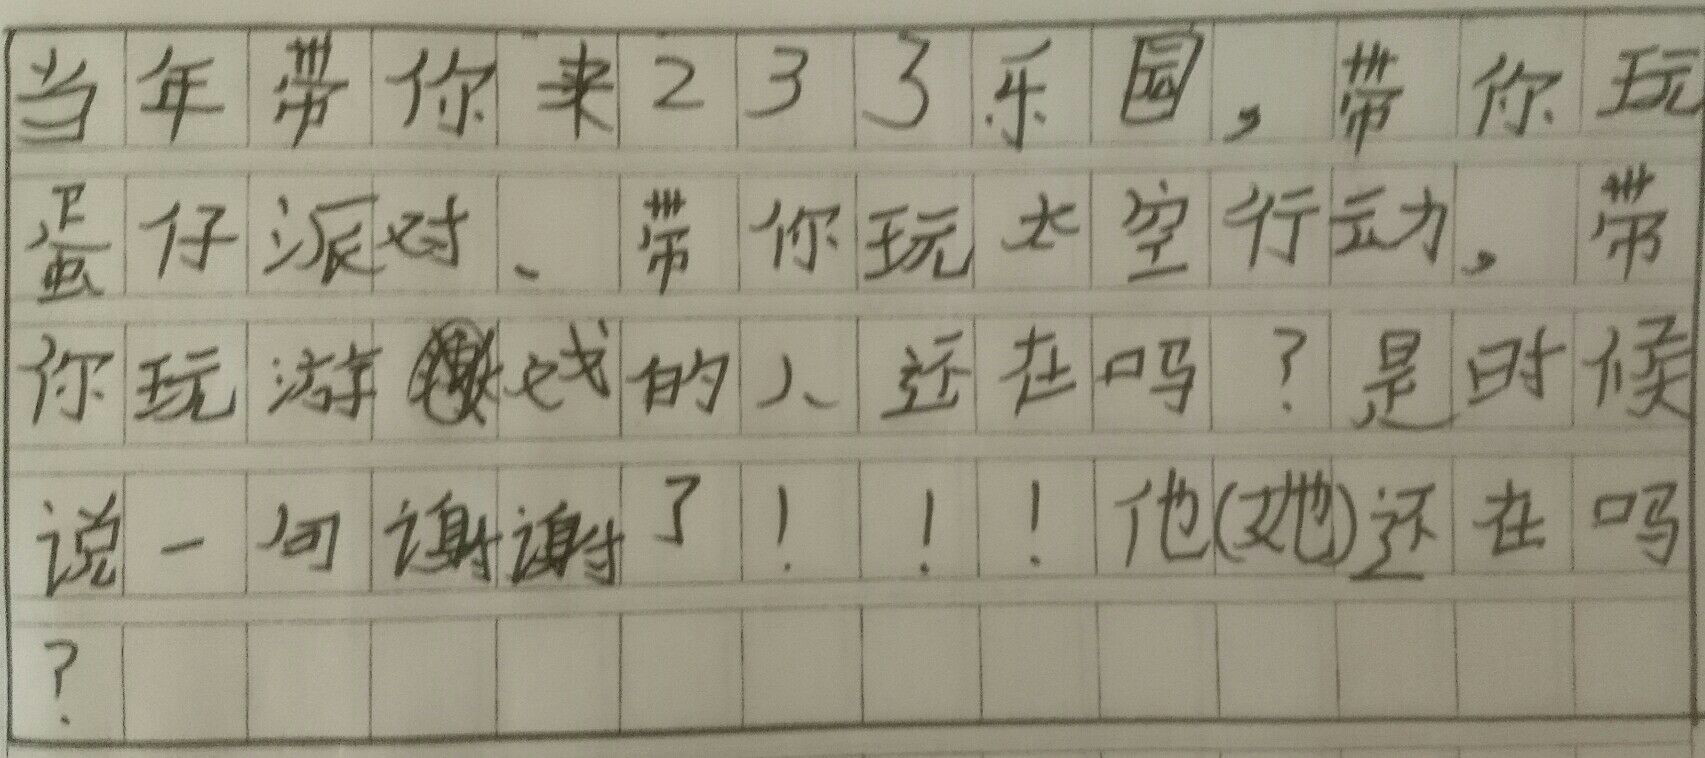 当年带你来233乐园，带你玩
蛋仔派对、带你玩太空行动，带
你玩游戏的人还在吗？是时候
说一句谢谢了！！！他(她)还在吗
？